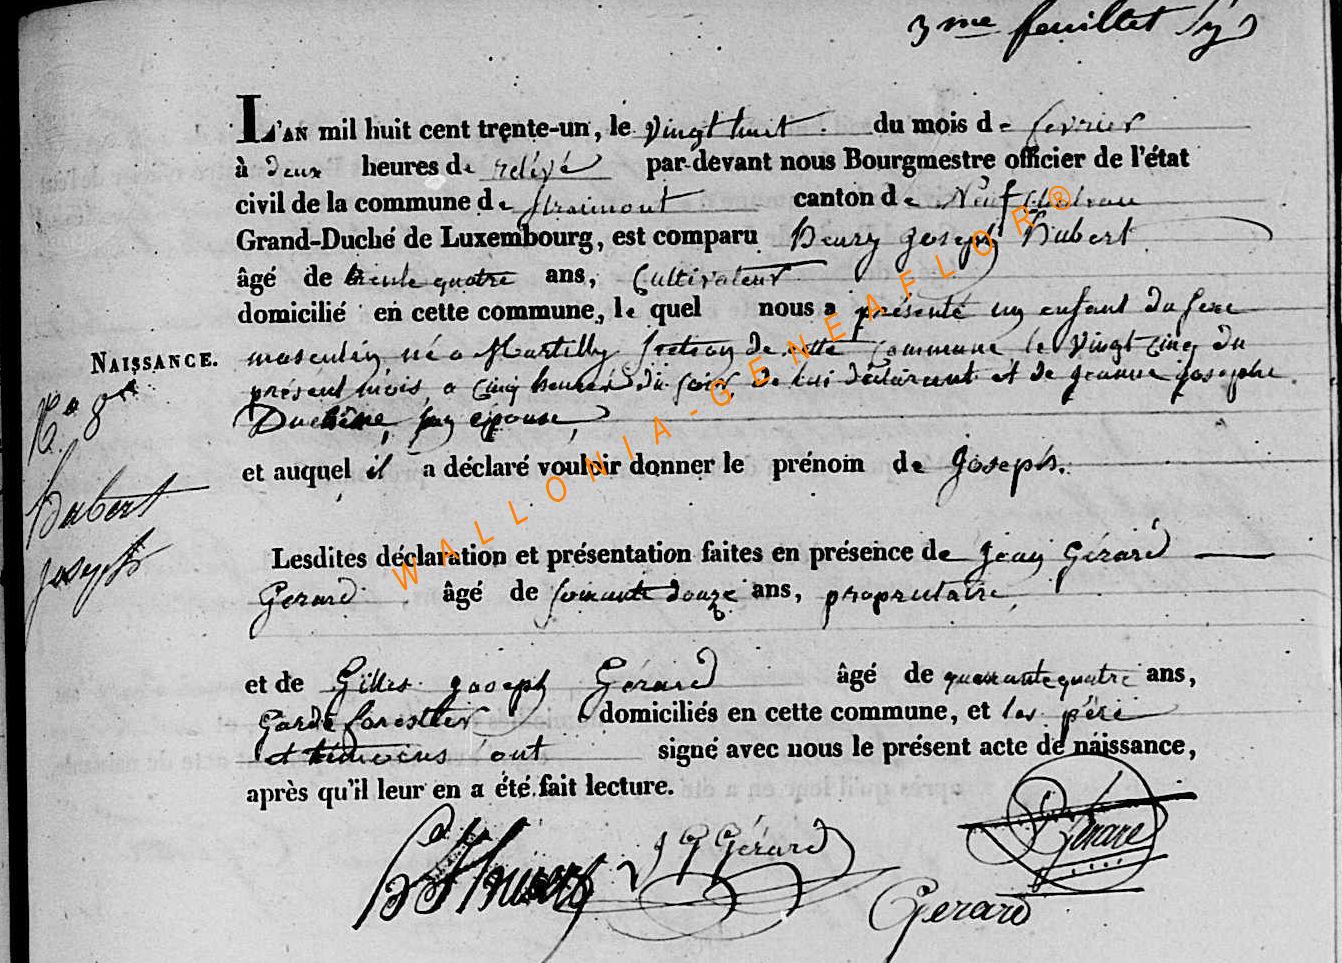 3me feuillet
L'AN mil huit cent trente-un, le vingt huit du mois de fevrier
à deux heures de relévé par-devant nous Bourgmestre officier de l'état
civil de la commune de Straimont canton de Neufchateau
Grand-Duché de Luxembourg, est comparu henry joseph hubert
âgé de trente quatre ans, Cultivateur
domicilié en cette commune, le quel nous a présenté un enfant du sexe
NAISSANCE. masculin né a Martilly section de cette commune le vingt cinq du
présent mois, a cinq heures du soir, de lui déclarant et de jeanne josephe
Duchêne, son epouse,
No 8
et auquel il a déclaré vouloir donner le prénom de joseph.
hubert
joseph
Lesdites déclaration et présentation faites en présence de jean Gérard
Gerard âgé de soixante douze ans, propriétaire
et de Gilles joseph Gérard âgé de quarante quatre ans,
Garde forestier domiciliés en cette commune, et les père
et temoins ont signé avec nous le présent acte de naissance,
après qu'il leur en a été fait lecture.
J G Gérard
Gerard
Gerard
WALLONIA-GENEAFLOR®